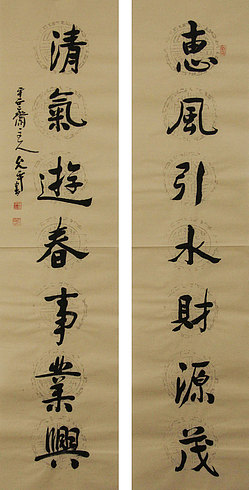 惠風引水財源茂
清氣遊春事業興